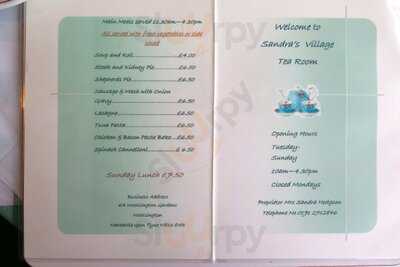 Main Meals Served 11.30am—4.30pm
All served with fresh vegetables or side
salad
Soup and Roll....................£4.00
Steak and Kidney Pie...............£6.50
Shepherds Pie....................£6.50
Sausage & Mash with Onion
Gravy.........................£6.50
Lasagne.......................£6.50
Tuna Pasta.....................£6.50
Chicken & Bacon Pasta Bake...£6.50
Spinach Cannelloni...............£ 6.50
Sunday Lunch £7.50
Business Address
Monkseaton
Newcastle Upon Tyne
Welcome to
Sandra's Village
Tea Room
Opening Hours
Tuesday-
Sunday
10am—4.30pm
Closed Mondays
Proprietor Mrs Sandra Hodgson
Telephone No 0191